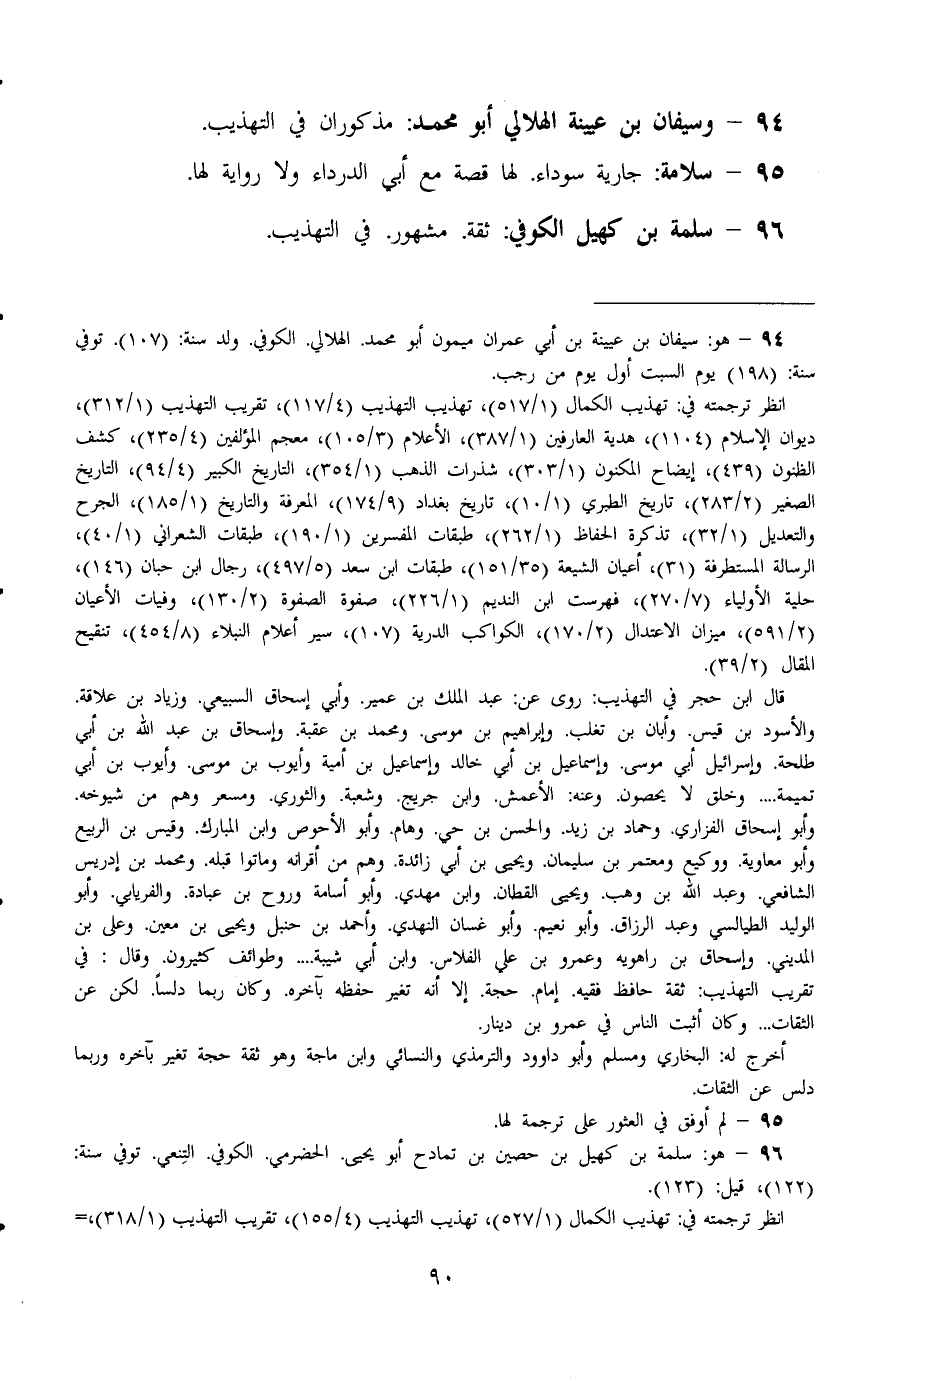 ٩٤ – وسيفان بن عيينة الهلالي أبو محمد: مذكوران في التهذيب.
٩٥ – سلامة: جارية سوداء. لها قصة مع أبي الدرداء ولا رواية لها.
٩٦ – سلمة بن كهيل الكوفي: ثقة. مشهور. في التهذيب.
٩٤ – هو: سيفان بن عيينة بن أبي عمران ميمون أبو محمد. الهلالي. الكوفي. ولد سنة: (١٠٧). توفي
سنة: (١٩٨) يوم السبت أول يوم من رجب.
انظر ترجمته في: تهذيب الكمال (٥١٧/١)، تهذيب التهذيب (١١٧/٤)، تقريب التهذيب (٣١٢/١)،
ديوان الإسلام (١١٠٤)، هدية العارفين (٣٨٧/١)، الأعلام (١٠٥/٣)، معجم المؤلفين (٢٣٥/٤)، كشف
الظنون (٤٣٩)، إيضاح المكنون (٣٠٣/١)، شذرات الذهب (٣٥٤/١)، التاريخ الكبير (٩٤/٤)، التاريخ
الصغير (٢٨٣/٢)، تاريخ الطبري (١٠/١)، تاريخ بغداد (١٧٤/٩)، المعرفة والتاريخ (١٨٥/١)، الجرح
والتعديل (٣٢/١)، تذكرة الحفاظ (٢٦٢/١)، طبقات المفسرين (١٩٠/١)، طبقات الشعراني (٤٠/١)،
الرسالة المستطرفة (٣١)، أعيان الشيعة (١٥١/٣٥)، طبقات ابن سعد (٤٩٧/٥)، رجال ابن حبان (١٤٦)،
حلية الأولياء (٢٧٠/٧)، فهرست ابن النديم (٢٢٦/١)، صفوة الصفوة (١٣٠/٢)، وفيات الأعيان
(٥٩١/٢)، ميزان الاعتدال (١٧٠/٢)، الكواكب الدرية (١٠٧)، سير أعلام النبلاء (٤٥٤/٨)، تنقيح
المقال (٣٩/٢).
قال ابن حجر في التهذيب: روى عن: عبد الملك بن عمير. وأبي إسحاق السبيعي. وزياد بن علاقة.
والأسود بن قيس. وأبان بن تغلب. وإبراهيم بن موسى. ومحمد بن عقبة. وإسحاق بن عبد الله بن أبي
طلحة. وإسرائيل أبي موسى. وإسماعيل بن أبي خالد وإسماعيل بن أمية وأيوب بن موسى. وأيوب بن أبي
تميمة.... وخلق لا يحصون. وعنه: الأعمش. وابن جريج. وشعبة. والثوري. ومسعر وهم من شيوخه.
وأبو إسحاق الفزاري. وحماد بن زيد. والحسن بن حي. وهام. وأبو الأحوص وابن المبارك. وقيس بن الربيع
وأبو معاوية. ووكيع ومعتمر بن سليمان. ويحيى بن أبي زائدة. وهم من أقرانه وماتوا قبله. ومحمد بن إدريس
الشافعي. وعبد الله بن وهب. ويحيى القطان. وابن مهدي. وأبو أسامة وروح بن عبادة. والفريابي. وأبو
الوليد الطيالسي وعبد الرزاق. وأبو نعيم. وأبو غسان النهدي. وأحمد بن حنبل ويحيى بن معين. وعلى بن
المديني. وإسحاق بن راهويه وعمرو بن علي الفلاس. وابن أبي شيبة.... وطوائف كثيرون. وقال : في
تقريب التهذيب: ثقة حافظ فقيه. إمام. حجة. إلا أنه تغير حفظه بآخره. وكان ربما دلساً. لكن عن
الثقات... وكان أثبت الناس في عمرو بن دينار.
أخرج له: البخاري ومسلم وأبو داوود والترمذي والنسائي وابن ماجة وهو ثقة حجة تغير بآخره وربما
دلس عن الثقات.
٩٥ – لم أوفق في العثور على ترجمة لها.
٩٦ – هو: سلمة بن كهيل بن حصين بن تمادح أبو يحيى. الحضرمي. الكوفي. التِنعي. توفي سنة:
(١٢٢)، قيل: (١٢٣).
انظر ترجمته في: تهذيب الكمال (٥٢٧/١)، تهذيب التهذيب (١٥٥/٤)، تقريب التهذيب (٣١٨/١)،=
٩٠